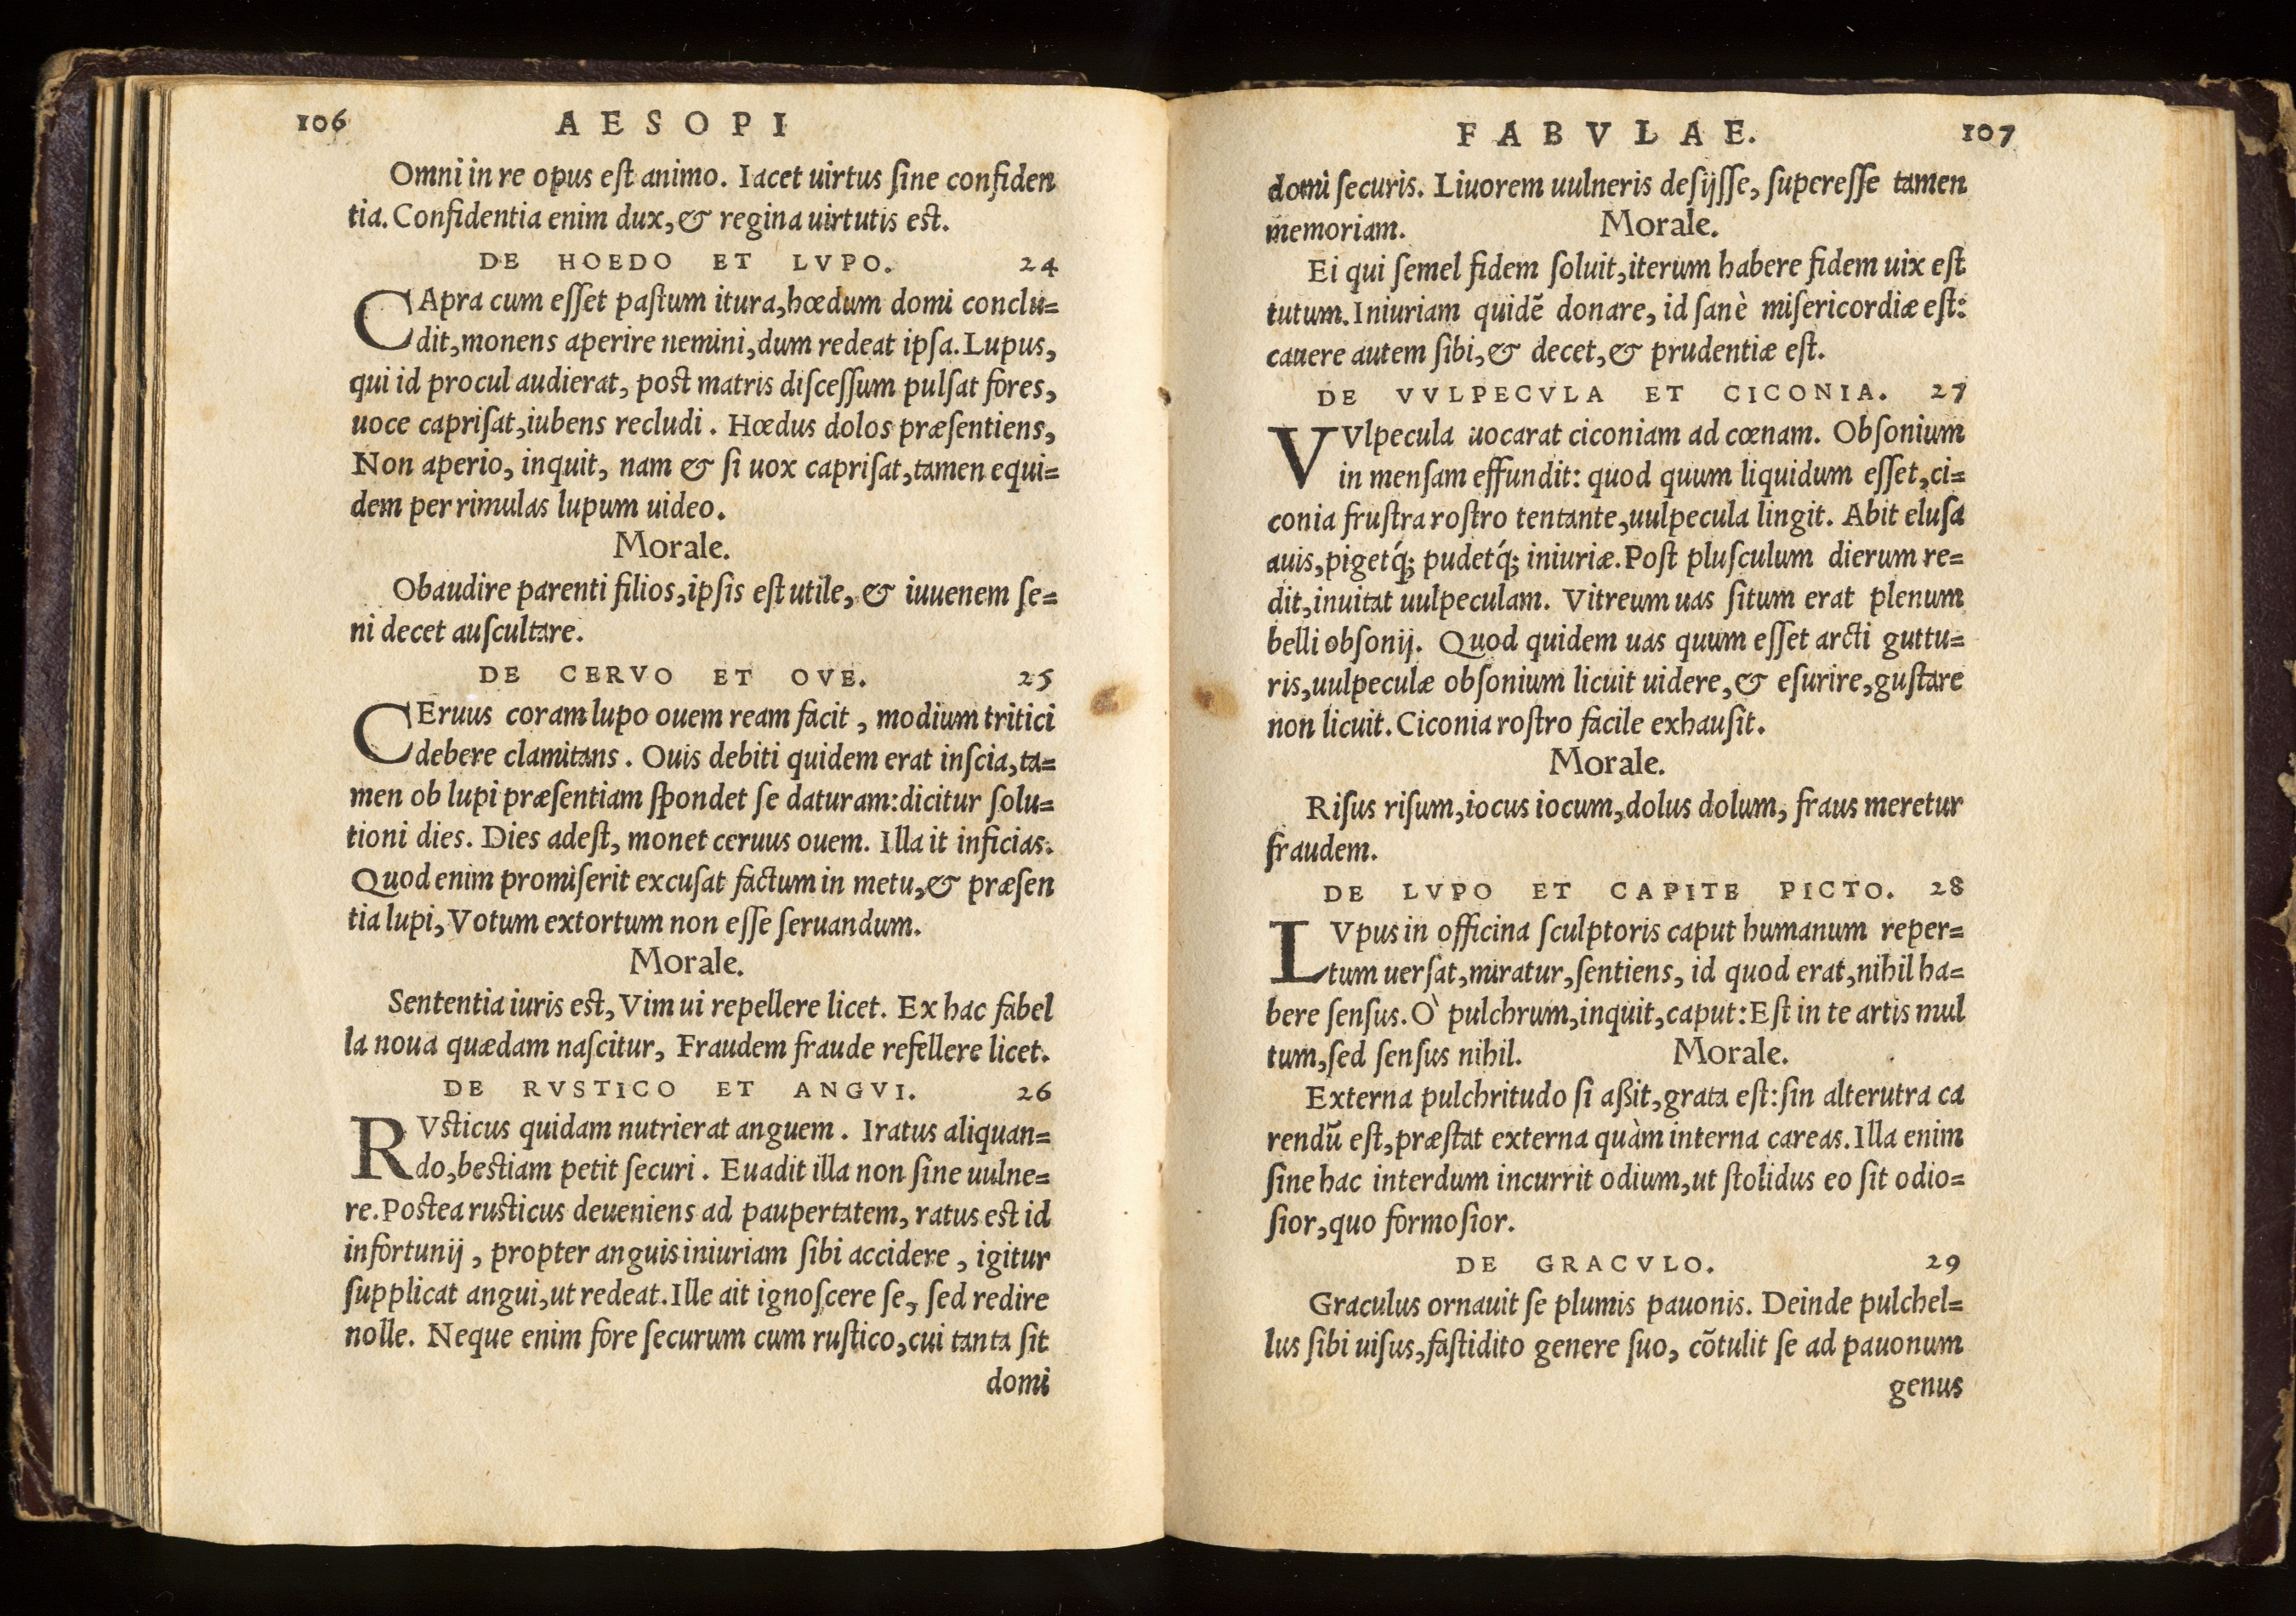 106 AESOPI
Omni in re opus eſt animo. Iacet uirtus ſine confiden
tia. Confidentia enim dux, & regina uirtutis eſt.
DE HOEDO ET LVPO. 24
CApra cum eſſet paſtum itura, hœdum domi conclu=
dit, monens aperire nemini, dum redeat ipſa. Lupus,
qui id procul audierat, poſt matris diſceſſum pulſat fores,
uoce capriſat, iubens recludi. Hœdus dolos præſentiens,
Non aperio, inquit, nam & ſi uox capriſat, tamen equi=
dem per rimulas lupum uideo.
Morale.
Obaudire parenti filios, ipſis eſt utile, & iuuenem ſe=
ni decet auſcultare.
DE CERVO ET OVE. 25
CEruus coram lupo ouem ream facit, modium tritici
debere clamitans. Ouis debiti quidem erat inſcia, ta=
men ob lupi præſentiam ſpondet ſe daturam: dicitur ſolu=
tioni dies. Dies adeſt, monet ceruus ouem. Illa it inficias.
Quod enim promiſerit excuſat factum in metu, & præſen
tia lupi, Votum extortum non eſſe ſeruandum.
Morale.
Sententia iuris eſt, Vim ui repellere licet. Ex hac fabel
la noua quædam naſcitur, Fraudem fraude refellere licet.
DE RVSTICO ET ANGVI. 26
RVſticus quidam nutrierat anguem. Iratus aliquan=
do, beſtiam petit ſecuri. Euadit illa non ſine uulne=
re. Poſtea ruſticus deueniens ad paupertatem, ratus eſt id
infortunij, propter anguis iniuriam ſibi accidere, igitur
ſupplicat angui, ut redeat. Ille ait ignoſcere ſe, ſed redire
nolle. Neque enim fore ſecurum cum ruſtico, cui tanta ſit
domi
FABVLAE. 107
domi ſecuris. Liuorem uulneris deſijſſe, ſupereſſe tamen
memoriam. Morale.
Ei qui ſemel fidem ſoluit, iterum habere fidem uix eſt
tutum. Iniuriam quidẽ donare, id ſanè miſericordiæ eſt:
cauere autem ſibi, & decet, & prudentiæ eſt.
DE VVLPECVLA ET CICONIA. 27
VVlpecula uocarat ciconiam ad cœnam. Obſonium
in menſam effundit: quod quum liquidum eſſet, ci=
conia fruſtra roſtro tentante, uulpecula lingit. Abit eluſa
auis, pigetq́; pudetq́; iniuriæ. Poſt pluſculum dierum re=
dit, inuitat uulpeculam. Vitreum uas ſitum erat plenum
belli obſonij. Quod quidem uas quum eſſet arcti guttu=
ris, uulpeculæ obſonium licuit uidere, & eſurire, guſtare
non licuit. Ciconia roſtro facile exhauſit.
Morale.
Riſus riſum, iocus iocum, dolus dolum, fraus meretur
fraudem.
DE LVPO ET CAPITE PICTO. 28
LVpus in officina ſculptoris caput humanum reper=
tum uerſat, miratur, ſentiens, id quod erat, nihil ha=
bere ſenſus. O` pulchrum, inquit, caput: Eſt in te artis mul
tum, ſed ſenſus nihil. Morale.
Externa pulchritudo ſi aßit, grata eſt: ſin alterutra ca
rendũ eſt, præſtat externa quàm interna careas. Illa enim
ſine hac interdum incurrit odium, ut ſtolidus eo ſit odio=
ſior, quo formoſior.
DE GRACVLO. 29
Graculus ornauit ſe plumis pauonis. Deinde pulchel=
lus ſibi uiſus, faſtidito genere ſuo, cõtulit ſe ad pauonum
genus